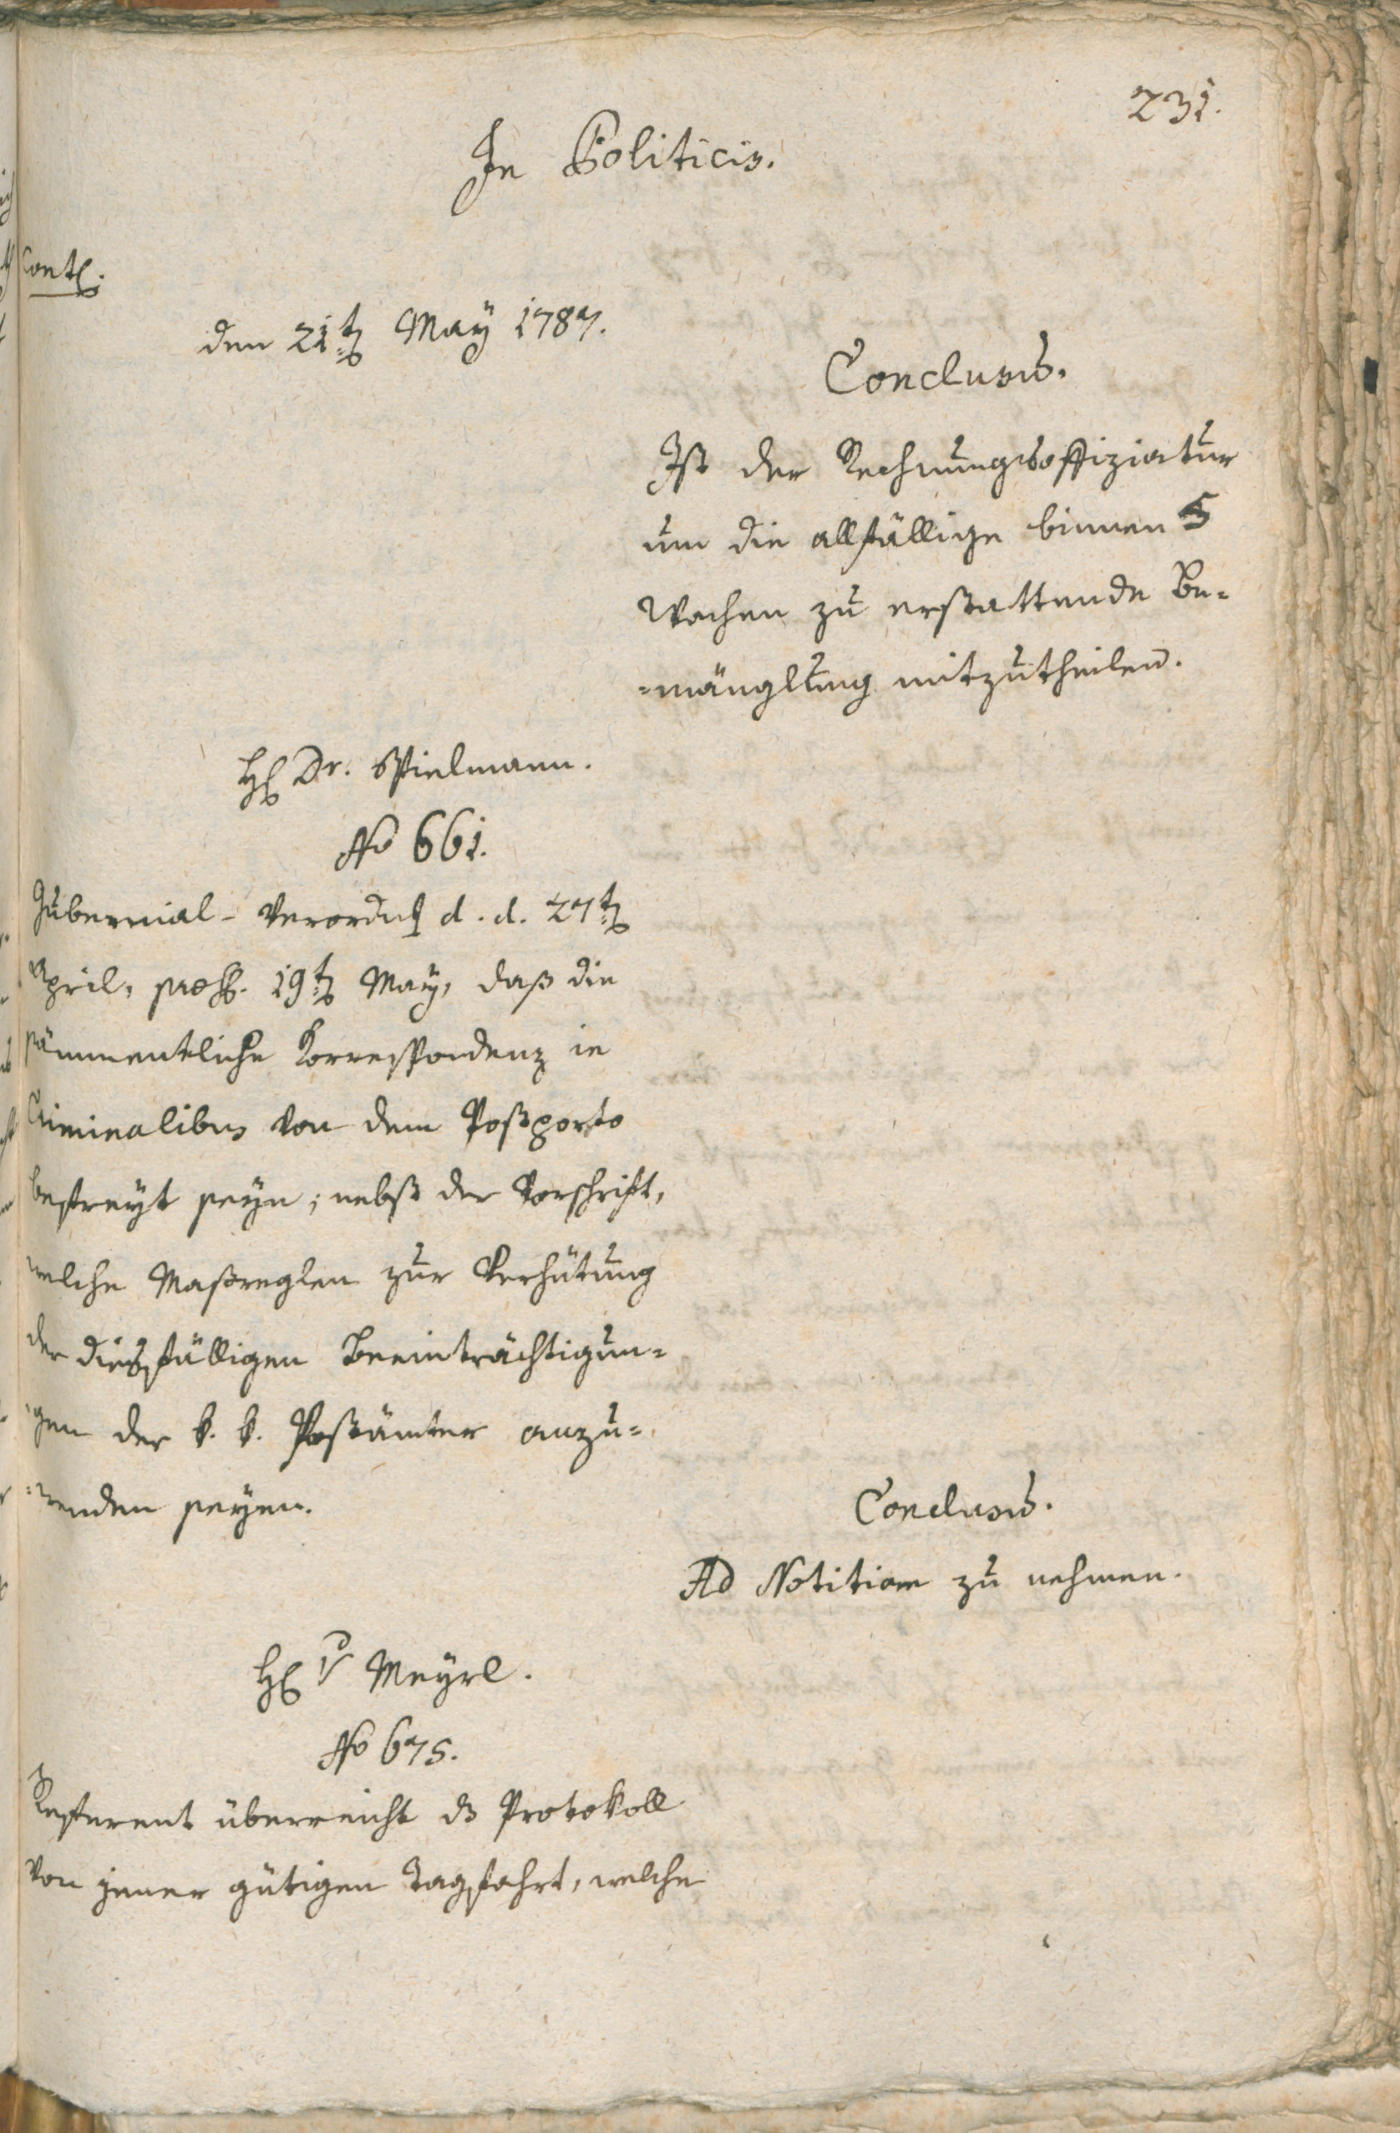 231.
In Politicis.
Cont.
den 21ten May 1787.
Conclusis.
Ist der Rechnungsoffiziatur
um die allfällige binnen 5
Wochen zu erstattende Be=
=mänglung mitzutheilen.
H. Dr. Spielmann.
No 661.
Gubernial- Verordng d. d. 27ten
April, praes. 19ten May, daß die
sämmentliche Korrespondenz in
Criminalibus von dem Postporto
befreyt seyn; nebst der Vorschrift,
welche Maßreglen zur Verhütung
der diesfälligen Beeinträchtigun=
gen der k. k. Postämter anzu=
=wenden seyen.
Conclusis.
Ad Notitiam zu nehmen.
H. v Meyrl.
No 675.
Referent überreicht ds Protokoll
von jener gütigen Tagsfahrt, welche